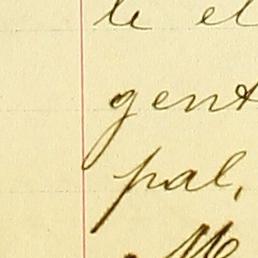 le el
gent
pal,
M